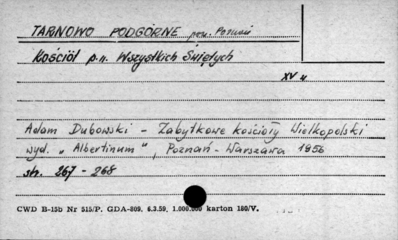 TARNOWO PODGÓRNE pow. Poznań
Kościół p.w. Wszystkich Świętych
XV w
Adam Dubowski - Zabytkowe kościoły Wielkopolski
wyd. „Albertinum", Poznań - Warszawa 1956
str. 267 - 268
CWD B-15b Nr 515/P. GDA-809, 6.3.59, 1.000.000 karton 180/V.